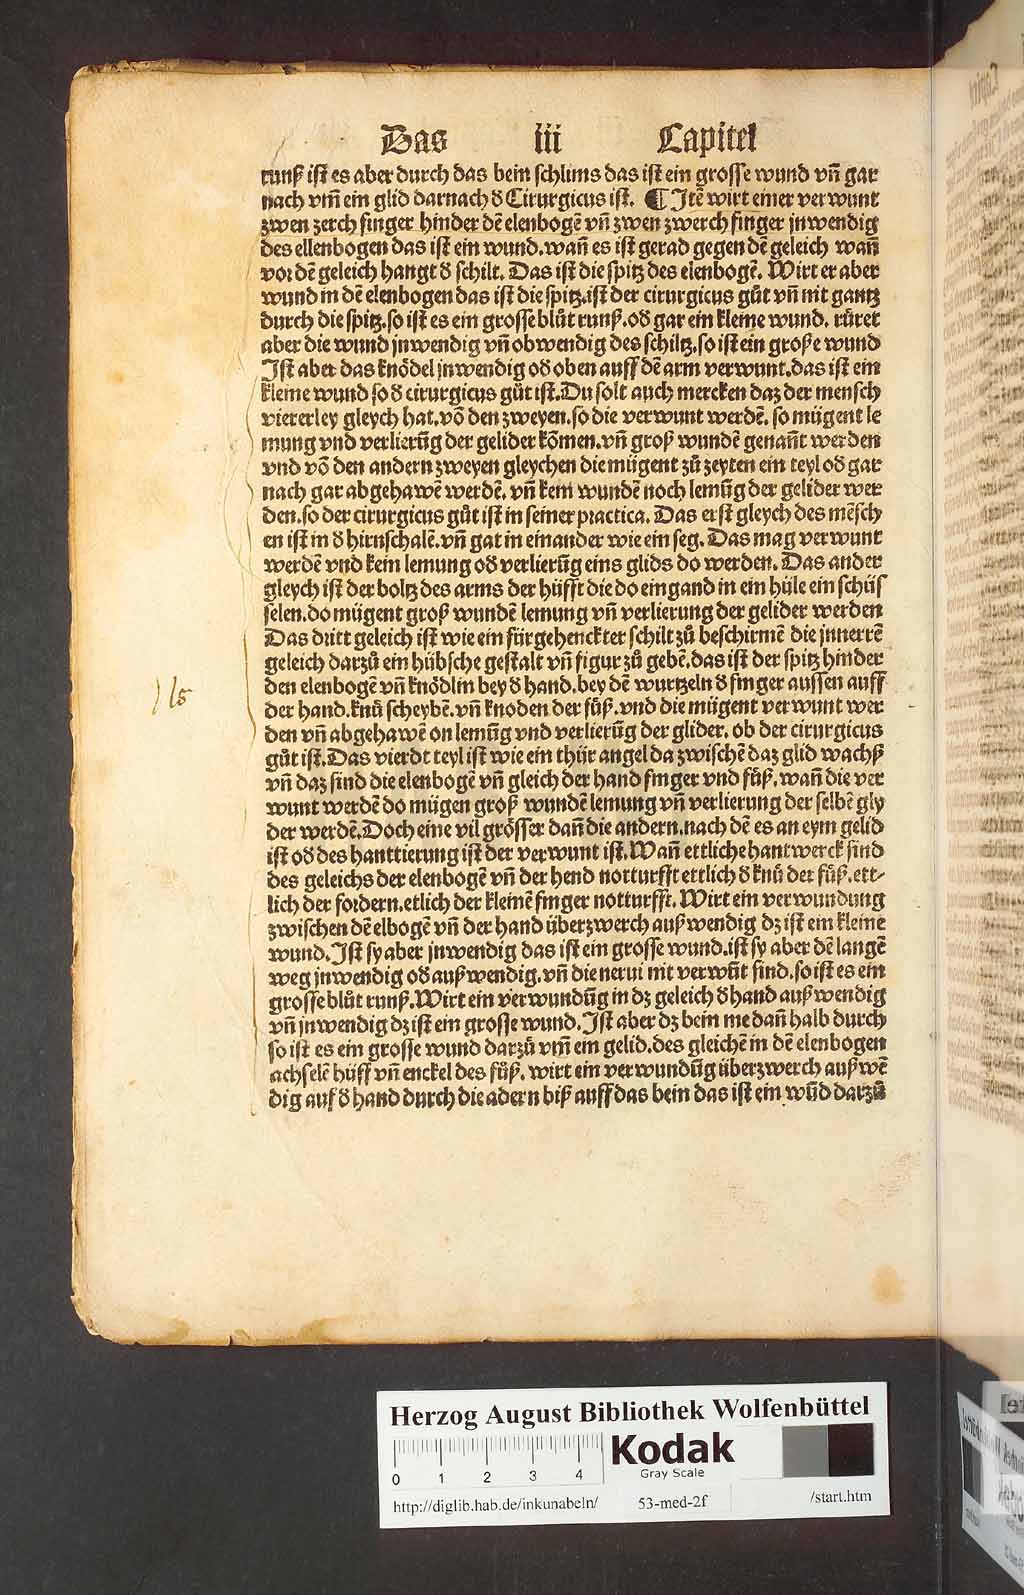 Das iii Capitel
runß ist es aber durch das bein schlims das ist ein grosse wund vn̄ gar
nach vm̄ ein glid darnach d̕ Cirurgicus ist. ¶ Jtē wirt einer verwunt
zwen zerch finger hinder dē elenbogē vn̄ zwen zwerch finger jnwendig
des ellenbogen das ist ein wund. wan̄ es ist gerad gegen dē geleich wan̄
vor dē geleich hangt d̕ schilt. Das ist die spitz des elenbogē. Wirt er aber
wund in dē elenbogen das ist die spitz. ist der cirurgicus gůt vn̄ nit gantz
durch die spitz. so ist es ein grosse blůt runß. od̕ gar ein kleine wund. růret
aber die wund jnwendig vn̄ obwendig des schiltz. so ist ein große wund
Jst aber das knödel jnwendig od̕ oben auff dē arm verwunt. das ist ein
kleine wund so d̕ cirurgicus gůt ist. Du solt auch mercken daz der mensch
viererley gleych hat. vō den zweyen. so die verwunt werdē. so mügent le
mung vnd verlierūg der gelider kōmen. vn̄ groß wundē genan̄t werden
vnd vō den andern zweyen gleychen die mügent zů zeyten ein teyl od̕ gar
nach gar abgehawē werdē. vn̄ kein wundē noch lemūg der gelider wer
den. so der cirurgicus gůt ist in seiner practica. Das erst gleych des mēsch
en ist in d̕ hirnschalē. vn̄ gat in einander wie ein seg. Das mag verwunt
werdē vnd kein lemung od̕ verlierūg eins glids do werden. Das ander
gleych ist der boltz des arms der hüfft die do eingand in ein hüle ein schüs
selen. do mügent groß wundē lemung vn̄ verlierung der gelider werden
Das dritt geleich ist wie ein fürgehenckter schilt zů beschirmē die jnnerrē
geleich darzů ein hübsche gestalt vn̄ figur zů gebē. das ist der spitz hinder
den elenbogē vn̄ knödlin bey d̕ hand. bey dē wurtzeln d̕ finger aussen auff
der hand. knü scheybē. vn̄ knoden der füß. vnd die mügent verwunt wer
den vn̄ abgehawē on lemūg vnd verlierūg der glider. ob der cirurgicus
gůt ist. Das vierdt teyl ist wie ein thür angel da zwischē daz glid wachß
vn̄ daz sind die elenbogē vn̄ gleich der hand finger vnd füß. wan̄ die ver
wunt werdē do mügen groß wundē lemung vn̄ verlierung der selbē gly
der werdē. Doch eine vil grösser dan̄ die andern. nach dē es an eym gelid
ist od̕ des hanttierung ist der verwunt ist. Wan̄ ettliche hantwerck sind
des geleichs der elenbogē vn̄ der hend notturfft ettlich d̕ knü der füß. ett-
lich der fordern. etlich der kleinē finger notturfft. Wirt ein verwundung
zwischen dē elbogē vn̄ der hand überzwerch außwendig dz ist ein kleine
wund. Jst sy aber jnwendig das ist ein grosse wund. ist sy aber dē langē
weg jnwendig od̕ außwendig. vn̄ die nerui nit verwūt sind. so ist es ein
grosse blůt runß. Wirt ein verwundūg in dz geleich d̕ hand außwendig
vn̄ jnwendig dz ist ein grosse wund. Jst aber dz bein me dan̄ halb durch
so ist es ein grosse wund darzů vm̄ ein gelid. des gleichē in dē elenbogen
achselē hüff vn̄ enckel des füß. wirt ein verwundūg überzwerch außwē
dig auf d̕ hand durch die adern biß auff das bein das ist ein wūd darzů
Herzog August Bibliothek Wolfenbüttel
0 1 2 3 4
Kodak
Gray Scale
http://diglib.hab.de/inkunabeln/ 53-med-2f /start.htm